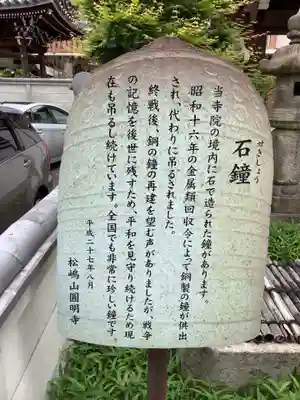 せきしょう
石鐘
当寺院の境内に石で造られた鐘があります。
昭和十六年の金属類回収令によって銅製の鐘が供出
され、代わりに吊るされました。
終戦後、銅の鐘の再建を望む声がありましたが、戦争
の記憶を後世に残すため、平和を見守り続けるため現
在も吊るし続けています。全国でも非常に珍しい鐘です。
平成二十七年八月
松嶋山圓明寺